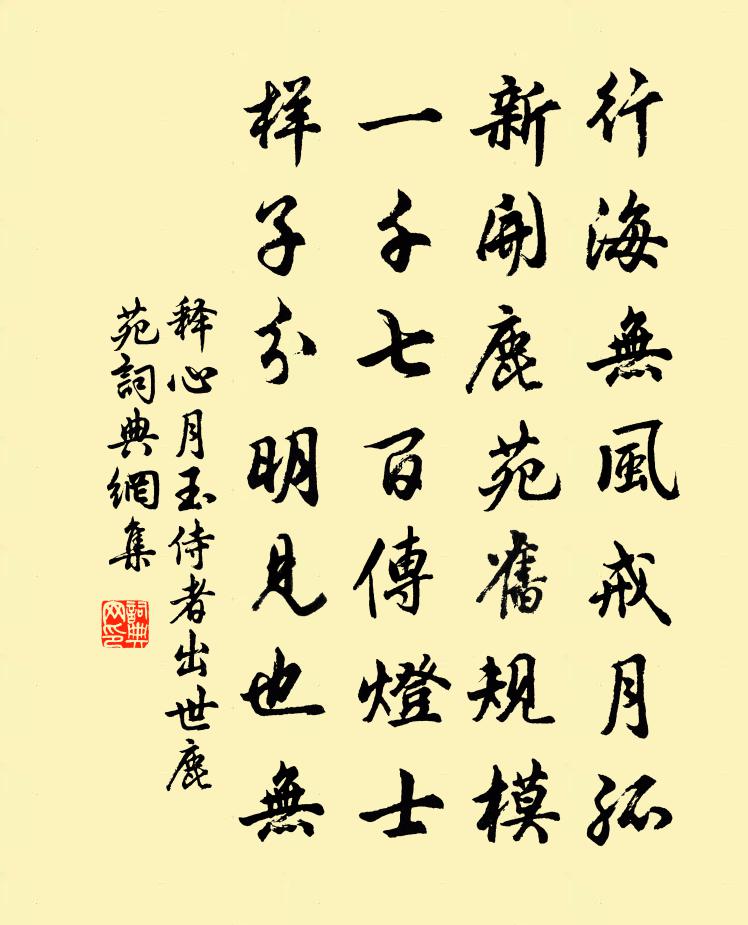 行海無風戒月孤
新開鹿苑舊規模
一千七百傳燈士
样子分明見也無
释心月玉侍者出世鹿
苑詞典網集
詞典
网印